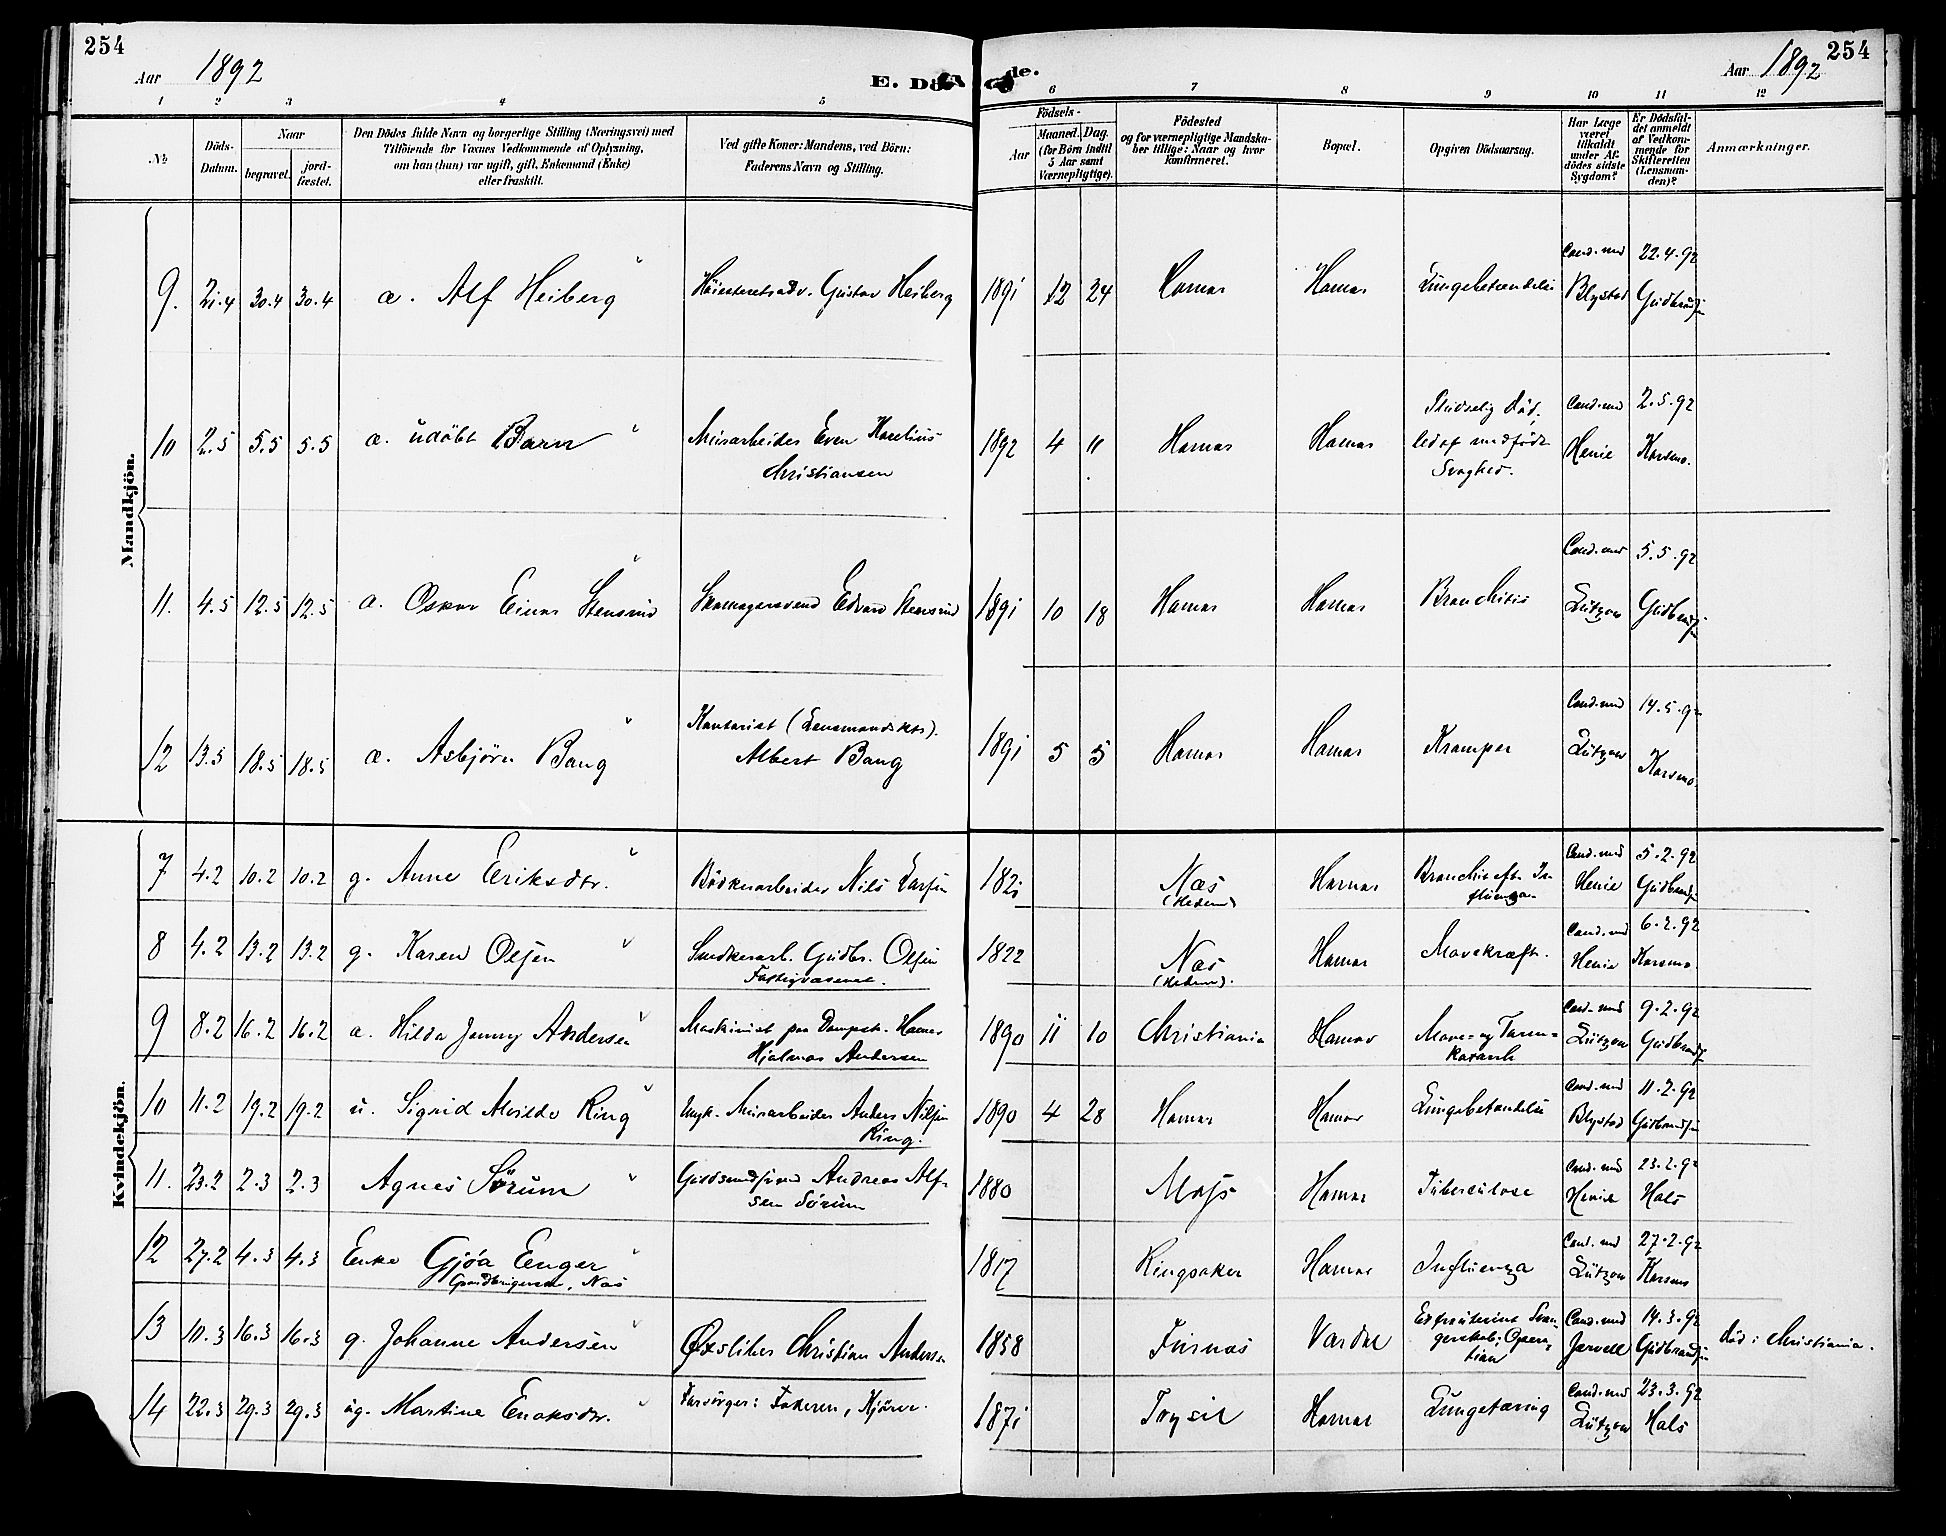 254
Aar 1892
E. Dö
de.
Aar 1892
254
1 2 3 4 5 6 7 8 9 10 11 12
No
Döds-
Datum.
Naar
begravet.
jord-
fæstet.
Den Dödes fulde Navn og borgerlige Stilling (Næringsvei) med
Tilföiende for Voxnes Vedkommende af Oplysning,
om han (hun) var ugift, gift, Enkemand (Enke)
eller fraskilt.
Ved gifte Koner: Mandens, ved Börn:
Faderens Navn og Stilling.
Födsels-
Aar
Maaned. Dag.
(for Börn indtil
5 Aar samt
Værnepligtige).
Födested
og for værnepligtige Mandska-
ber tillige: Naar og hvor
konfirmeret.
Bopæl.
Opgiven Dödsaarsag.
Har Læge
været
tilkaldt
under Af-
dödes sidste
Sygdom?
Er Dödsfal-
det anmeldt
af Vedkom-
mende for
Skifteretten
(Lensman-
den)?
Anmærkninger.
Mandkjön.
9. 21.4 30.4 30.4 æ. Alf Heiberg Höiesteretsadv. Gustav Heiberg 1891 12 24 Hamar Hamar Lungebetændelse Cand. med Blystad 22.4.92 Gudbrandsen
10 2.5 5.5 5.5 æ. udöbt Barn Murarbeider Even Karelius
Christiansen 1892 4 " Hamar Hamar Pludselig död,
led af medfödt
Svaghed. Cand. med Henie 2.5.92 Karsmo.
11. 4.5 12.5 12.5 æ. Oskar Einar Stensrud Skomagersvend Edvard Stensrud 1891 10 18 Hamar Hamar Bronchitis Cand. med Lützow 5.5.92 Gudbrandsen
12 13.5 18.5 18.5 æ. Asbjörn Bang Kontorist (Lensmandsktr).
Albert Bang 1891 5 5 Hamar Hamar Kramper Cand. med Lützow 14.5.92 Karsmo.
Kvindekjön.
7 4.2 10.2 10.2 g. Anne Eriksdtr. Bödkerarbeider Nils Larsen 1821 Næs
(Hedem) Hamar Bronchit eft. In-
fluenza Cand. med Henie 5.2.92 Gudbrands
8 4.2 13.2 13.2 g. Karen Olsen Snedkerarb. Gudbr. Olsen
Fattigvæsenet. 1822 Næs
(Hedem). Hamar Mavekræft. Cand. med Henie 6.2.92 Karsmo.
9 8.2 16.2 16.2 æ. Hilda Jenny Andersen Maskinist paa Dampsk. Hamar
Hjalmar Andersen 1890 11 10 Christiania Hamar Mave- og Tarm-
katarrh Cand. med Lützow 9.2.92 Gudbrands
10 11.2 19.2 19.2 u. Sigrid Alvilde Ring Ungk. Murarbeider Anders Nilsen
Ring. 1890 4 28 Hamar Hamar Lungebetændelse Cand. med Blystad 11.2.92 Gudbrandsen
11. 23.2 2.3 2.3 Agnes Sørum Guldsmedsvend Andreas Alf-
sen Sørum 1880 Moss Hamar Tuberculose Cand. med Henie 23.2.92 Hals
12 27.2 4.3 4.3 Enke Gjøa Eenger
Næs 1817 Ringsaker Hamar Influenza Cand. med Lützow 27.2.92 Karsmo
13 10.3 16.3 16.3 g. Johanne Andersen Christian Andersen 1858 Furnæs Vardal Extrauterint Svan-
gerskab; Opera-
tion Cand. med Jervell 14.3.92 Gudbrandsen död i Christiania.
14 22.3 29.3 29.3 ug. Martine Enoksdtr. Forsörger: Faderen, Kjörer. 1871 Trysil Hamar Lungetæring Cand. med Lützow 23.3.92 Hals